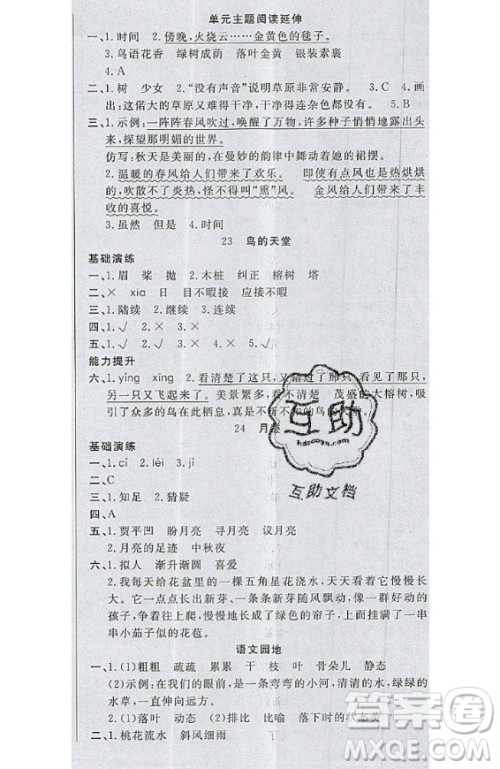 单元主题阅读延伸
一、1.时间 2.傍晚,火烧云……金黄色的毯子。
3.鸟语花香 绿树成荫 落叶金黄 银装素裹
4.A
二、1.树 少女 2.“没有声音”说明草原非常安静。 3.C 4.画
出:这偌大的草原又难得干净,干净得连杂色都没有。 5.B
三、1.示例:一阵阵春风唤醒了万物,许多种子悄悄地露出头
来,探望那明媚的世界。
仿写:秋天是美丽的,在曼妙的韵律中舞动着她的裙摆。
2.温暖的春风给人们带来了欢乐。 即使带给人们的
收获吹不散了炎热,怪不得叫“熏”风。 金风给人们带来丰收
的喜悦。
3.虽然 但是 4.时间
23 鸟的天堂
基础演练
一、1.眉 桨 抛 2.木桩 纠正 榕树 塔
二、× xia 日 目不暇接 应接不暇
三、1.陆续 2.继续 3.连续
四、1.√ 2.× 3.×
五、1.√ 2.× 3.√
能力提升
六、1.yìng xīng 2.看清楚了这只,又错过了那只,看见了那只,
另一只又飞起来了。 看不清楚 茂盛的大榕树,
吸引了众多的鸟在此栖息,大饱眼福。
24 月
基础演练
一、1.cí 2.léi 3.jǐ
三、1.知足 2.猜疑
四、A
五、1.贾平凹 盼月亮 寻月亮 议月亮
2.月亮的足迹 中秋夜
六、1.拟人 渐升渐圆 喜爱
2.我每天给花盆里的一棵五角星花浇水,看着它慢慢长
大,抽出长长的新芽,新芽随风飘动,又慢慢地顺着绳
子往上爬,慢慢地织成了绿色的帘子,上面开满了一串
串小小的花苞。
语文园地
一、1.(1)粗粗 疏疏 累累 干 枝 叶 骨朵儿 静态
(2)示例:在我们的眼前,是一条弯弯的小河,清清的水,绿绿
的草,一直伸向远方。
2.(1)落叶 动态 (2)排比 比喻
二、1.桃花流水 斜风细雨
互助
hdzcowy.com
互助文档
答案圈
MXQE.COM